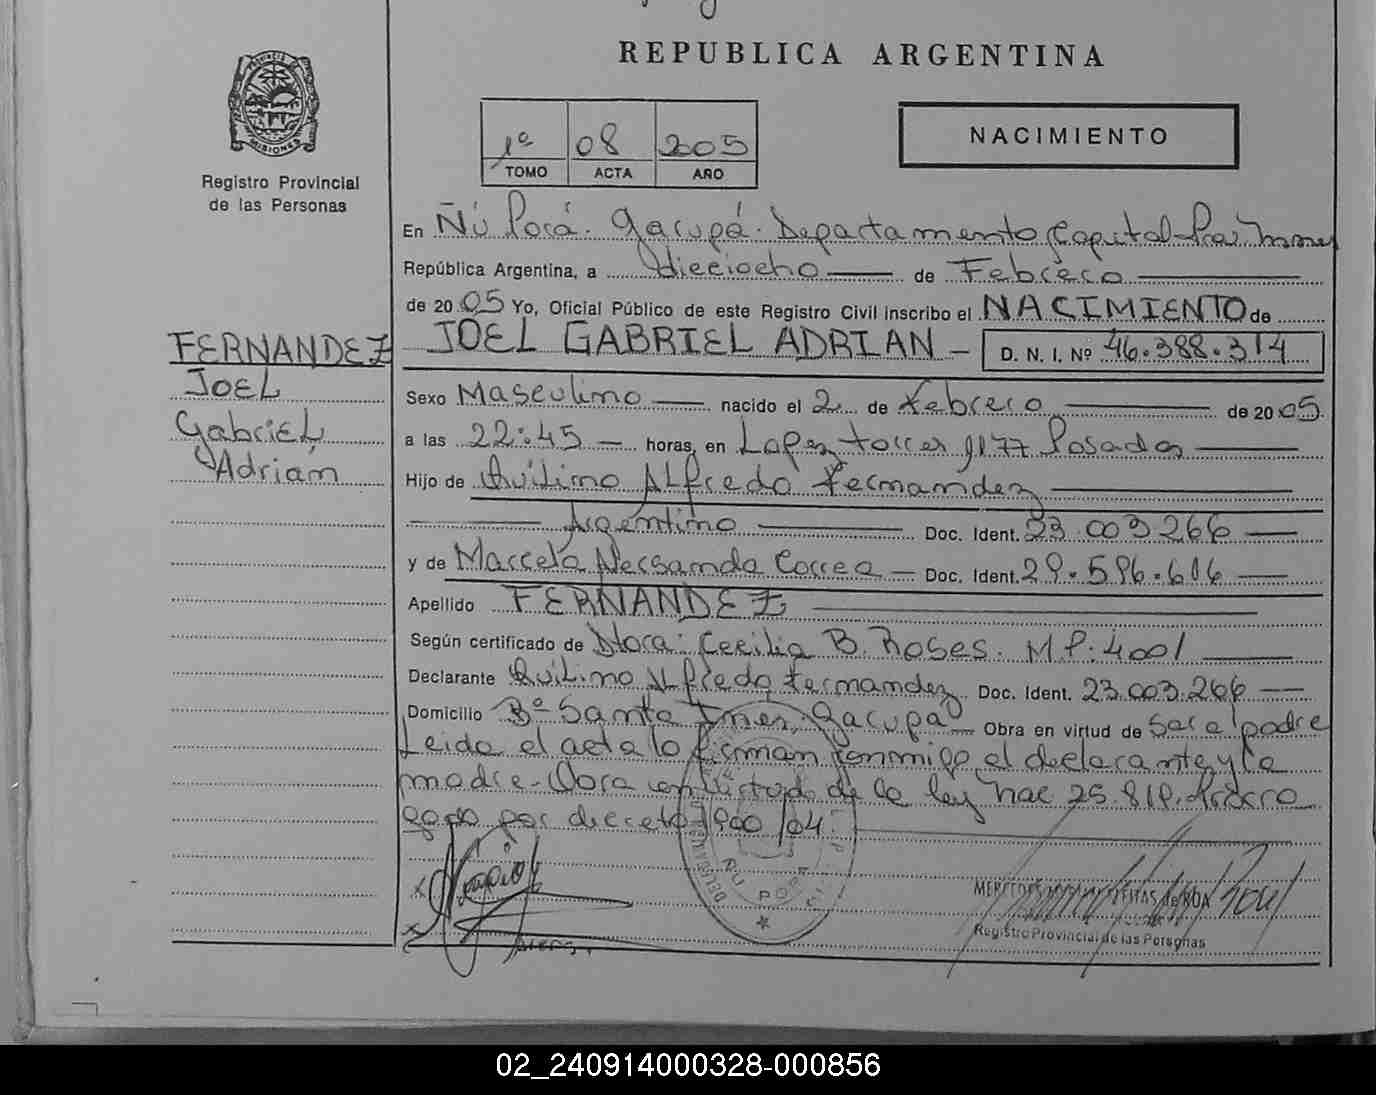 REPUBLICA ARGENTINA
MISIONES
Registro Provincial
de las Personas
1º 08 2005
TOMO ACTA AÑO
NACIMIENTO
En Ñú Porá. Garupá. Departamento Capital
República Argentina, a dieciocho de Febrero
de 2005 Yo, Oficial Público de este Registro Civil inscribo el NACIMIENTO de
JOEL GABRIEL ADRIAN D. N. I. Nº 46.388.314
FERNANDEZ
JOEL
Gabriel
Adrián
Sexo Masculino nacido el 2 de febrero de 2005
a las 22:45 horas, en Lopez torres 1177 Posadas
Hijo de Quilino Alfredo Fernandez
Argentino Doc. Ident. 23.003.266
y de Marcela Alessandra Correa Doc. Ident. 29.596.606
Apellido FERNANDEZ
Según certificado de Dtora: Cecilia B. Roses. M.P. 4001
Declarante Quilino Alfredo Fernandez Doc. Ident. 23.003.266
Domicilio Bº Santa Ines, Garupá Obra en virtud de ser el padre
Leida el acta lo firman conmigo el declarante y la
madre. Obra en virtud de la ley nac 25.819. Prorro
gado por decreto 1900/04.
MERCEDES FREITAS de ROA
Registro Provincial de las Personas
02_240914000328-000856